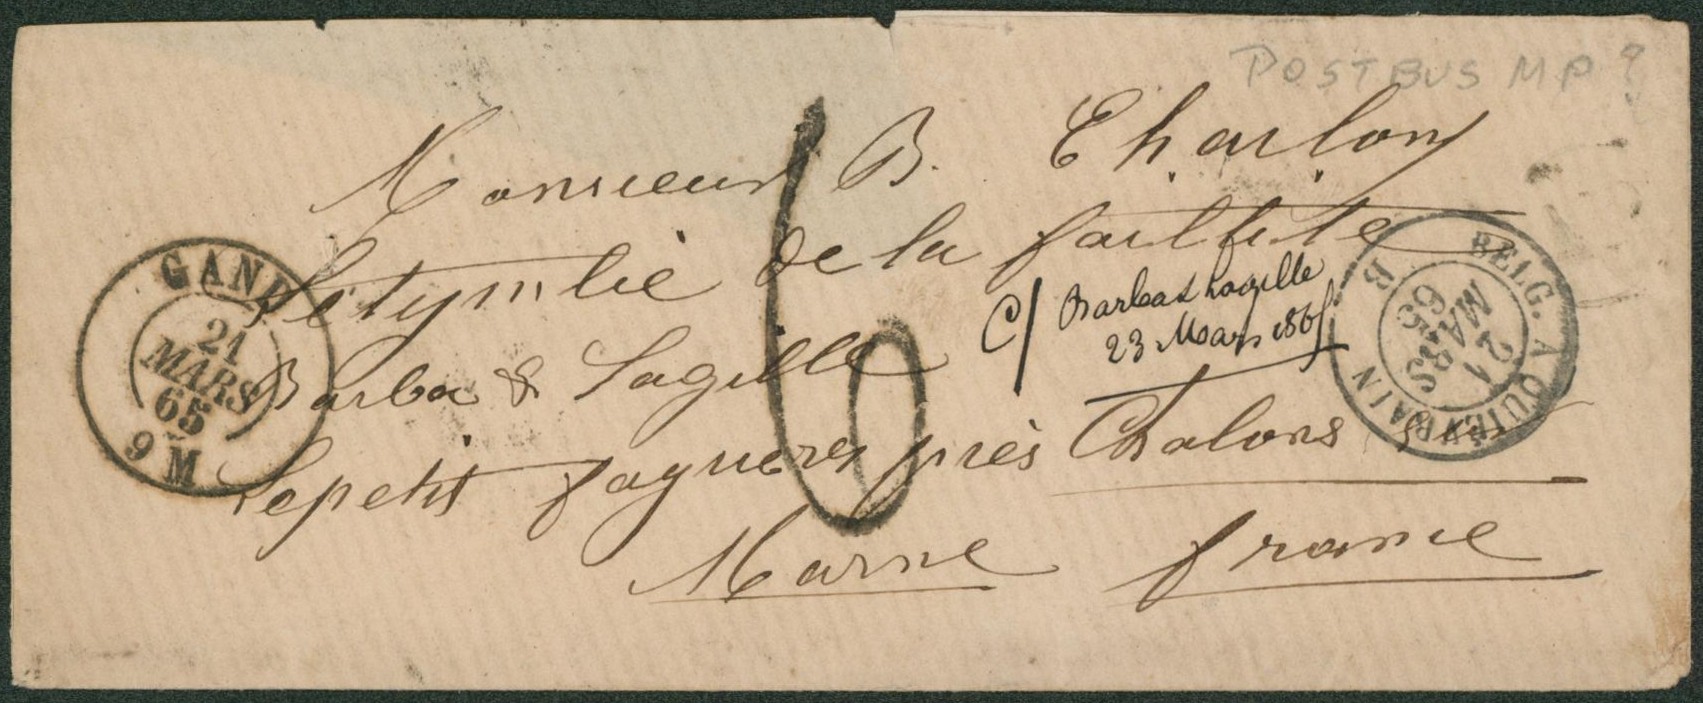 POSTBUS MP ?
Monsieur B. Charlon
de la faillite
Barba & Lagille
Lepetit fagnieres près Chalons sur
Marne france
C/ Barba & Lagille
23 Mars 1865
6
GAND
21
MARS
65
9 M
BELG. A QUIEVRAIN
21
MARS
65
B